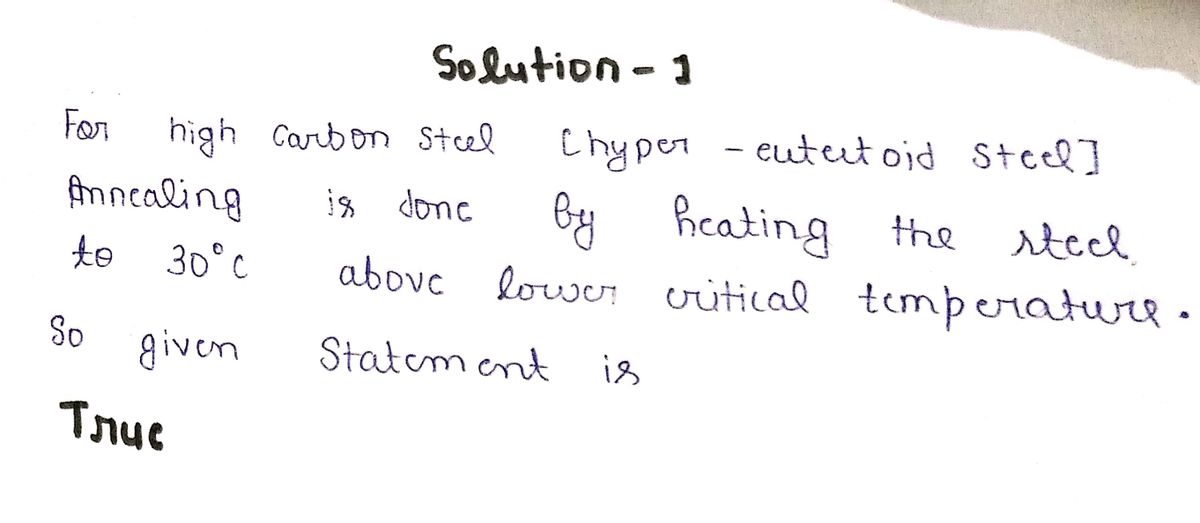 Solution - 1
For high Carbon Steel [hyper - eutectoid Steel]
Annealing is done by heating the steel
to 30°C above lower critical temperature.
So given Statement is
True